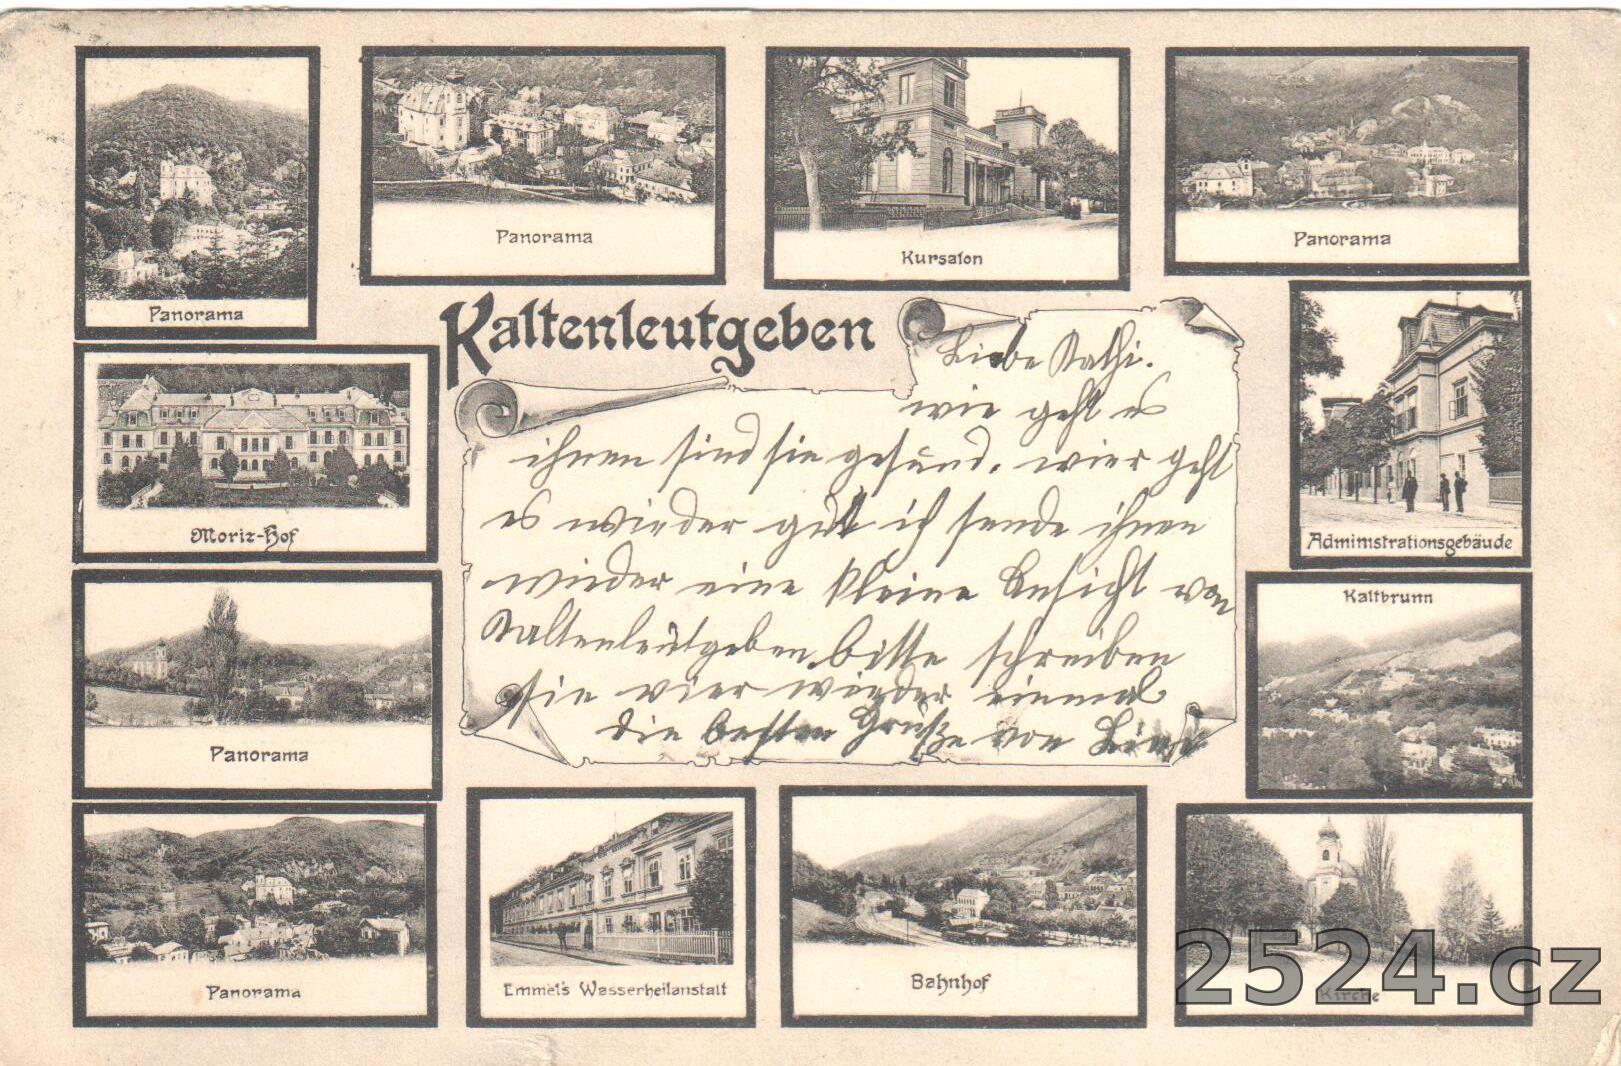 Panorama
Panorama
Kursalon
Panorama
Kaltenleutgeben
Moriz-Hof
Administrationsgebäude
Liebe Kathi.
wie geht es
ihnen sind sie gesund. wier geht
es wieder gut ich sende ihnen
wieder eine kleine Ansicht von
Kaltenleutgeben bitte schreiben
sie wier wieder einmal
die besten Grüße von
Panorama
Kaltbrunn
Panorama
Emmel's Wasserheilanstalt
Bahnhof
Kirche
2524.cz